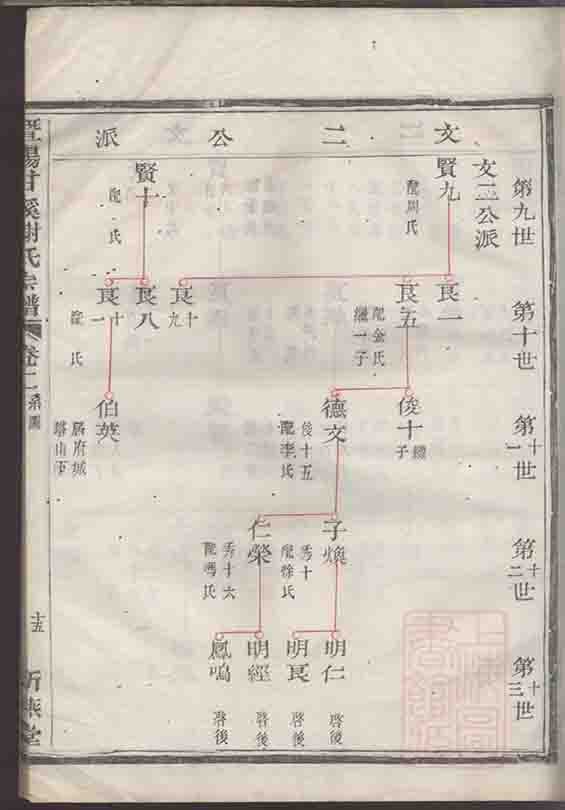 文二公派
第九世
第十世
第十一世
第十二世
第十三世
文二公派
賢九
配周氏
賢十
配 氏
良一
良五
配金氏
繼一子
良十九
良八
良十一
氏
俊十
繼子
德文
俊十五
配李氏
伯英
居府城
塔山下
子煥
秀十
配徐氏
仁榮
秀十六
配馮氏
明仁
啓後
明良
啓後
明經
啓後
鳳鳴
啓後
暨陽甘溪謝氏宗譜
卷二
系圖
十五